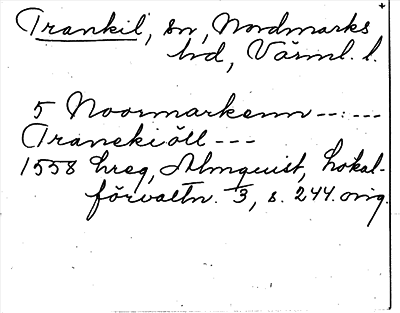 Trankil, sn, Nordmarks
hd, Värml. l.
5 Noormarkenn --:---
Tranekiöll ---
1558 hreg, Almquist, Lokal-
förvaltn. 3, s. 244. orig.